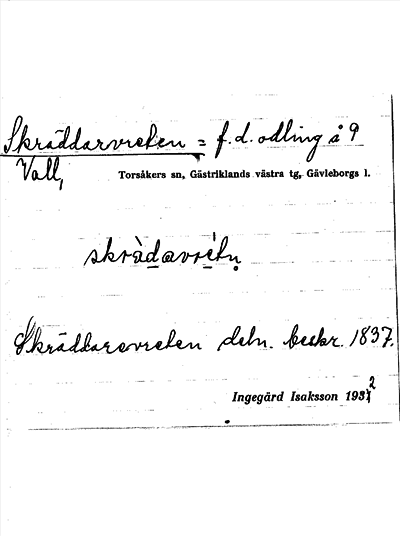 Skräddarvreten = f.d. odling å 9
Vall,
Torsåkers sn, Gästriklands västra tg, Gävleborgs l.
skràdavrétn̥
Skräddarevreten deln. beskr. 1837.
Ingegärd Isaksson 1932